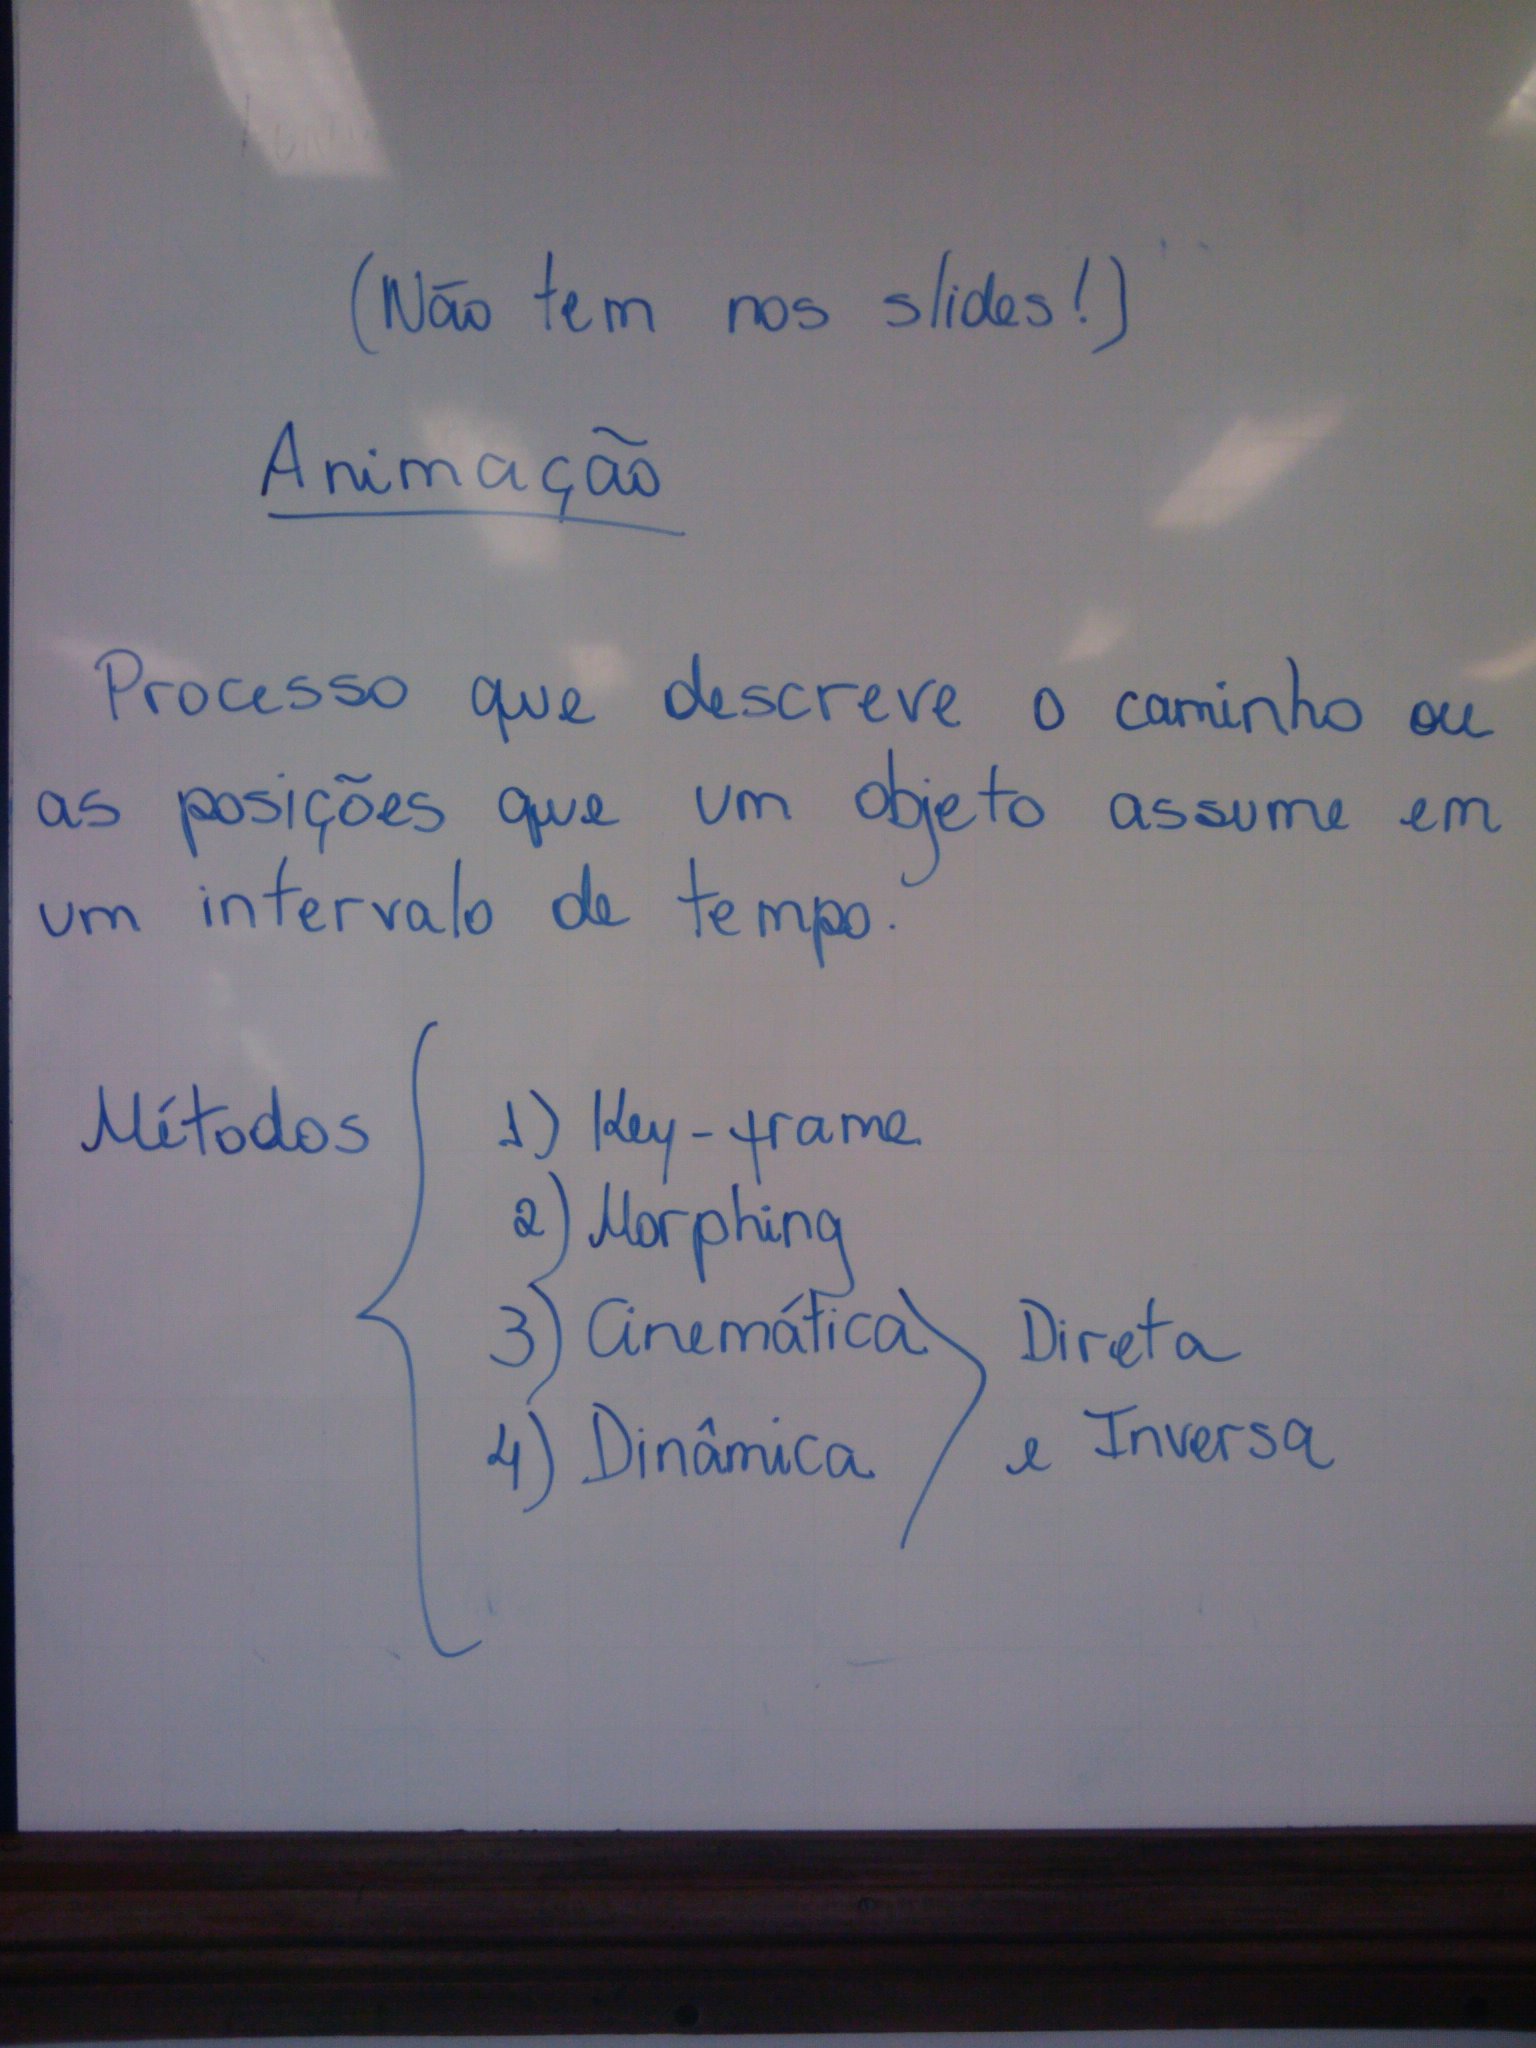 (Não tem nos slides!)
Animação
Processo que descreve o caminho ou
as posições que um objeto assume em
um intervalo de tempo.
Métodos
1) Key-frame
2) Morphing
3) Cinemática
4) Dinâmica
Direta
e Inversa